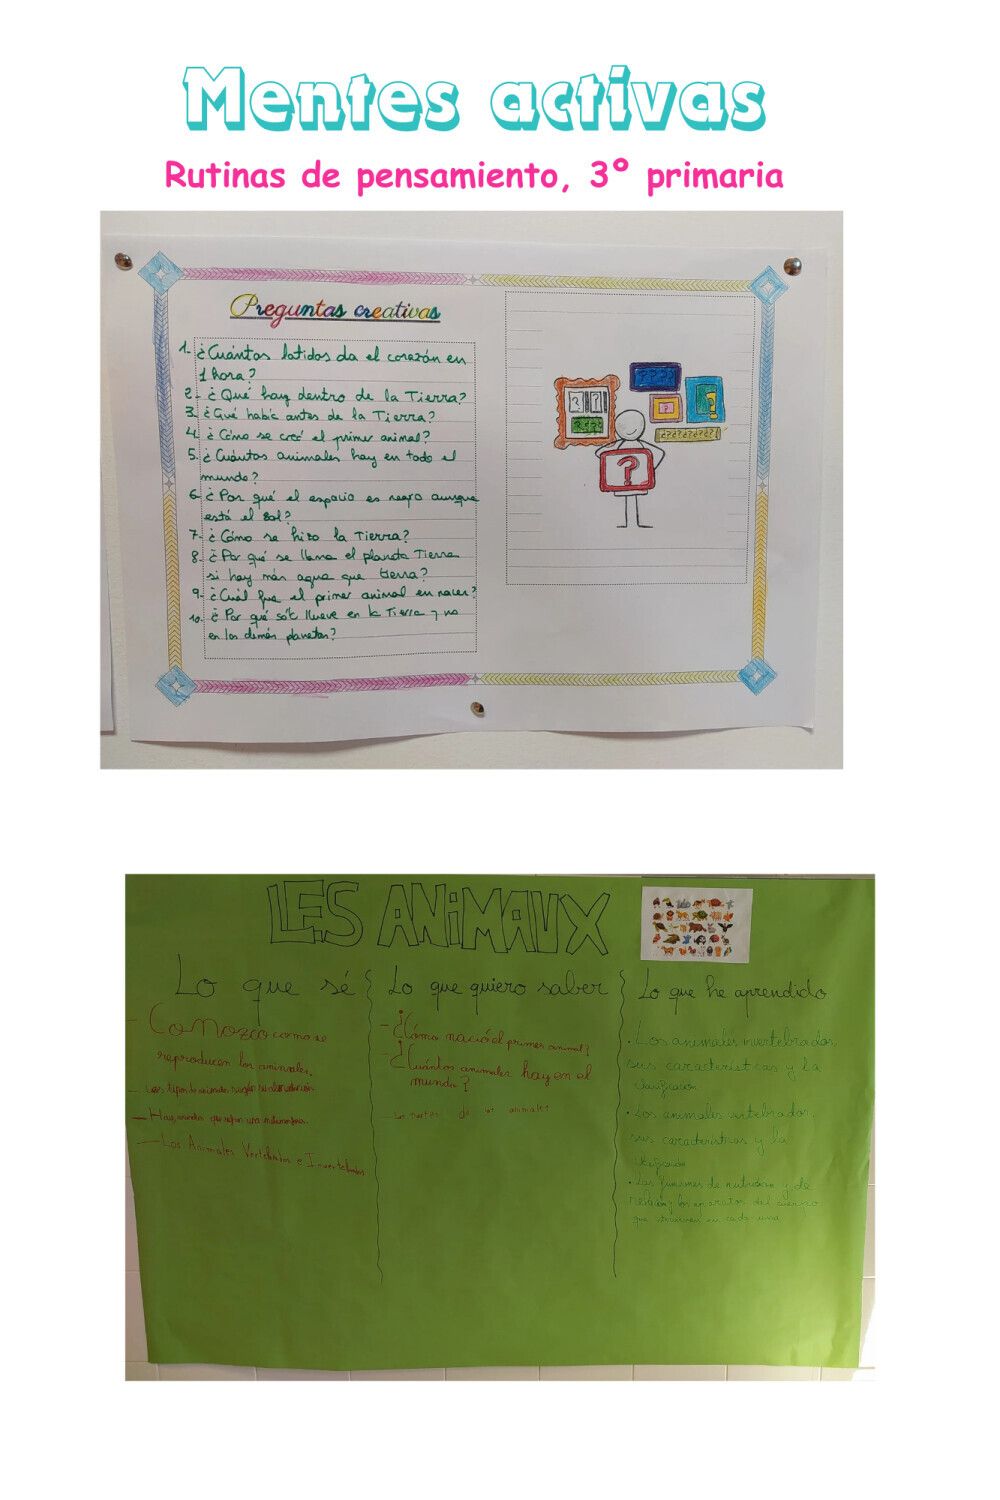 Mentes activas
Rutinas de pensamiento, 3º primaria
Preguntas creativas
1- ¿Cuántos latidos da el corazón en
1 hora?
2- ¿Qué hay dentro de la Tierra?
3- ¿Qué había antes de la Tierra?
4- ¿Cómo se creó el primer animal?
5- ¿Cuántos animales hay en todo el
mundo?
6- ¿Por qué el espacio es negro aunque
está el Sol?
7- ¿Cómo se hizo la Tierra?
8- ¿Por qué se llama el planeta Tierra
si hay más agua que tierra?
9- ¿Cuál fue el primer animal en nacer?
10- ¿Por qué sólo llueve en la Tierra y no
en los demás planetas?
? ? ? ?
? ?
?
?
? ? ?
¿?¿?¿?¿?!
?
LES ANiMAUX
Lo que sé
Lo que quiero saber
Lo que he aprendido
- Conozco como se
reproducen los animales.
- Los tipos de animales según su
- Hay animales que
- Los Animales Vertebrados e Invertebrados
- ¿Cómo nació el primer animal?
- ¿Cuántos animales hay en el
mundo?
- Las partes de los animales
· Los animales invertebrados,
sus características y la
clasificación
· Los animales vertebrados,
sus características y la
clasificación
· Las funciones de nutrición y de
relación y los aparatos del cuerpo
que intervienen en cada una